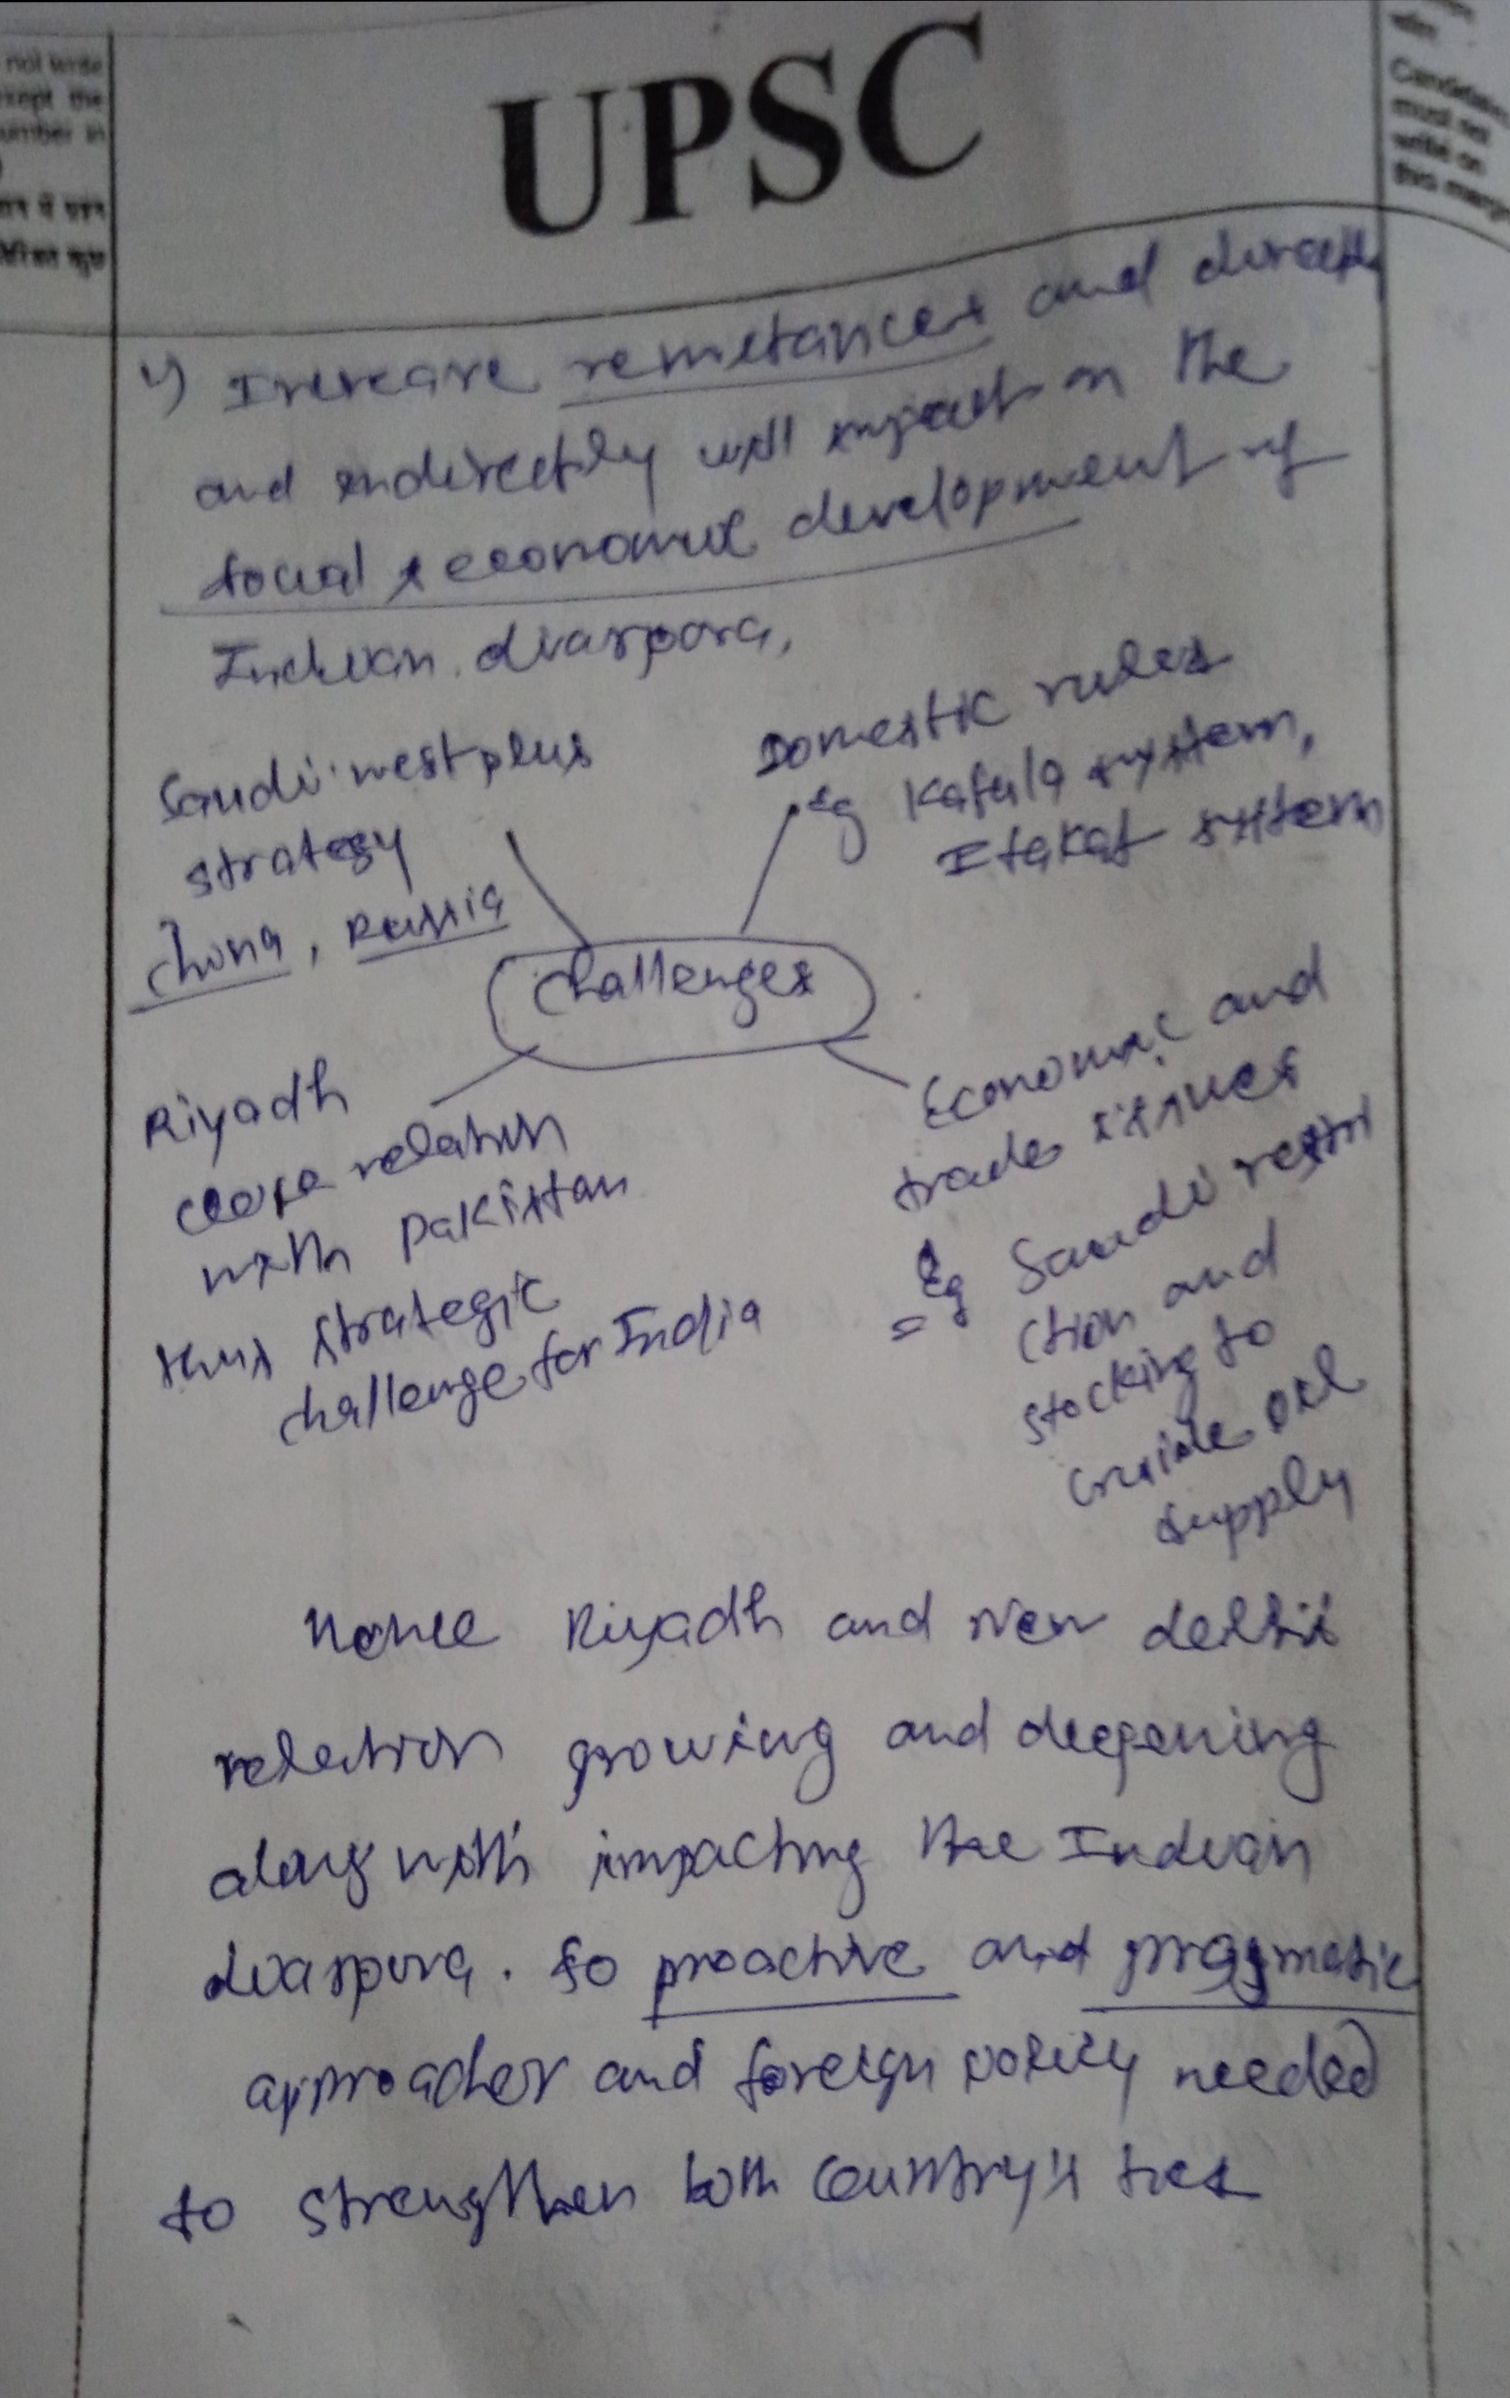 not write
except the
number in
UPSC
Candidates
must not
write on
this margin
Increare remetances and directly
and indirectly will impact on the
social & economic development of
Indian diaspora,
Saudi west plus
strategy
China, Russia
Domestic rules
Eg Kafala system,
Itakat system
Challenges
Riyadh
close relation
with Pakistan
thus strategic
challenge for India
Economic and
trade issues
Eg Saudi restri
ction and
stocking to
crude oil
supply
Hence Riyadh and New delhi
relation growing and deepening
along with impacting the Indian
diaspora. So proactive and pragmatic
approaches and foreign policy needed
to strengthen both country's ties